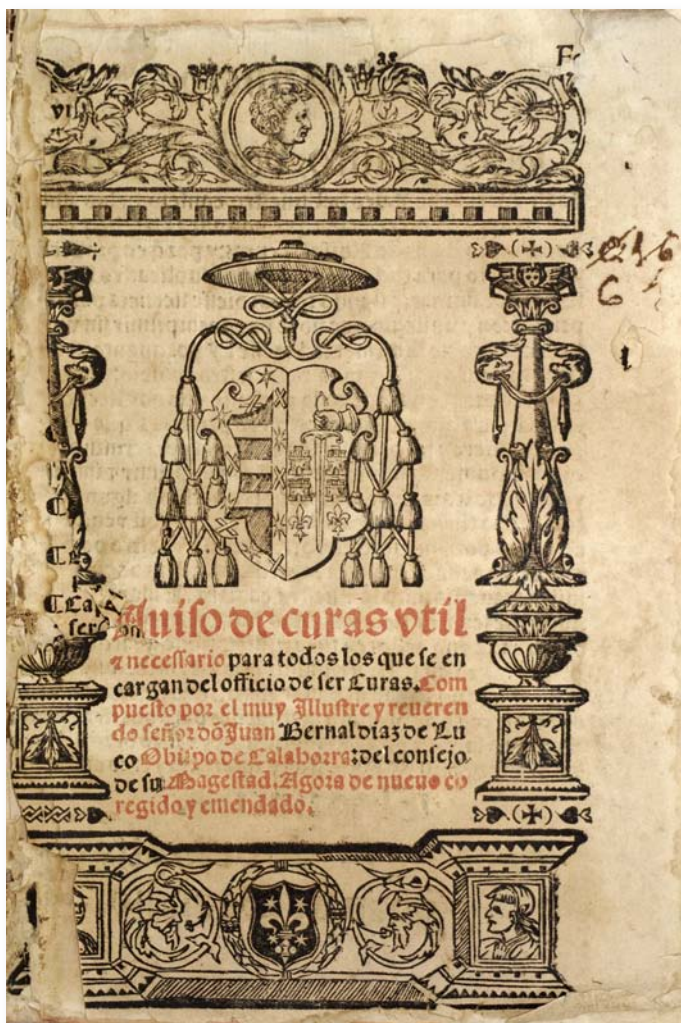 Auiso de curas vtil
⁊ necessario para todos los que se en
cargan del officio de ser Curas. Com
puesto por el muy Illustre y reueren
do señor dõ Juan Bernal diaz de Lu
co Obispo de Calahorra: del consejo
de su Magestad. Agora de nueuo co
regido y emendado.